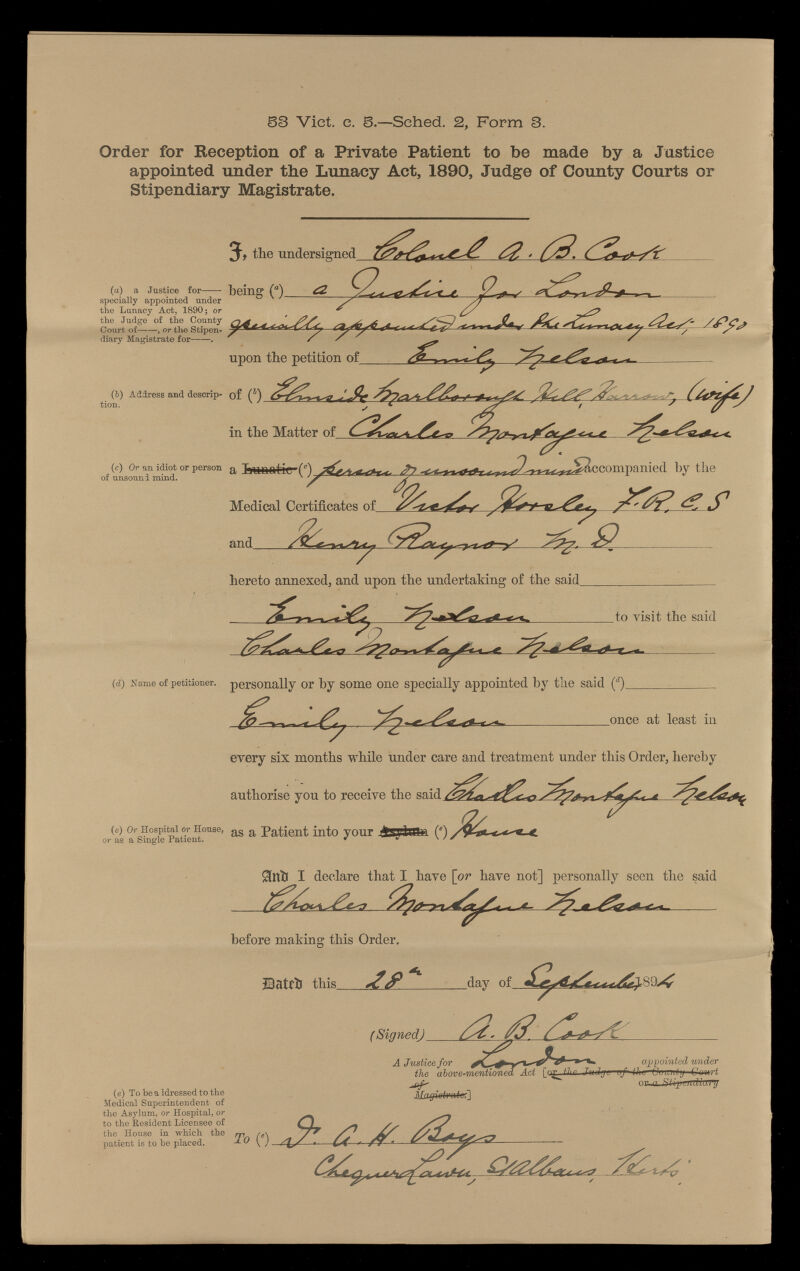 53 Vict. c. 5.—Sched. 2, Form 3.
Order for Reception of a Private Patient to be made by a Justice
appointed under the Lunacy Act, 1890, Judge of County Courts or
Stipendiary Magistrate.
I, the undersigned Colonel A. B. Cook
(a) a Justice for——
specially appointed under
the Lunacy Act, 1890; or
the Judge of the County
Court of——, or the Stipen-
diary Magistrate for——.
being (a) a Justice for London
specially appointed under the Lunacy Act, 1890
upon the petition of Emily Nelson
(b) Address and descrip-
tion.
of (b) Elmside, Marlborough Hill, Harrow, (wife)
in the Matter of Charles Montague Nelson
(c) Or an idiot or person
of unsound mind.
a Lunatic (c) person of unsound mind accompanied by the
Medical Certificates of Victor Horsley F.R.C.S
and Henry Raynor M.D.
hereto annexed, and upon the undertaking of the said
Emily Nelson to visit the said
Charles Montague Nelson
(d) Name of petitioner.
personally or by some one specially appointed by the said (d)
Emily Nelson once at least in
every six months while under care and treatment under this Order, hereby
authorise you to receive the said Charles Montague Nelson
(e) Or Hospital or House,
or as a Single Patient.
as a Patient into your Asylum (e) House
And I declare that I have [or have not] personally seen the said
Charles Montague Nelson
before making this Order.
Dated this 28th day of September 1894
(Signed) A. B. Cook
A Justice for London appointed under
the above-mentioned Act [or the Judge of the County Court
of or a Stipendiary
Magistrate.]
(e) To be addressed to the
Medical Superintendent of
the Asylum, or Hospital, or
to the Resident Licensee of
the House in which the
patient is to be placed.
To (e) Dr. A. H. Boys
Chequer Lawn, St Albans, Herts.